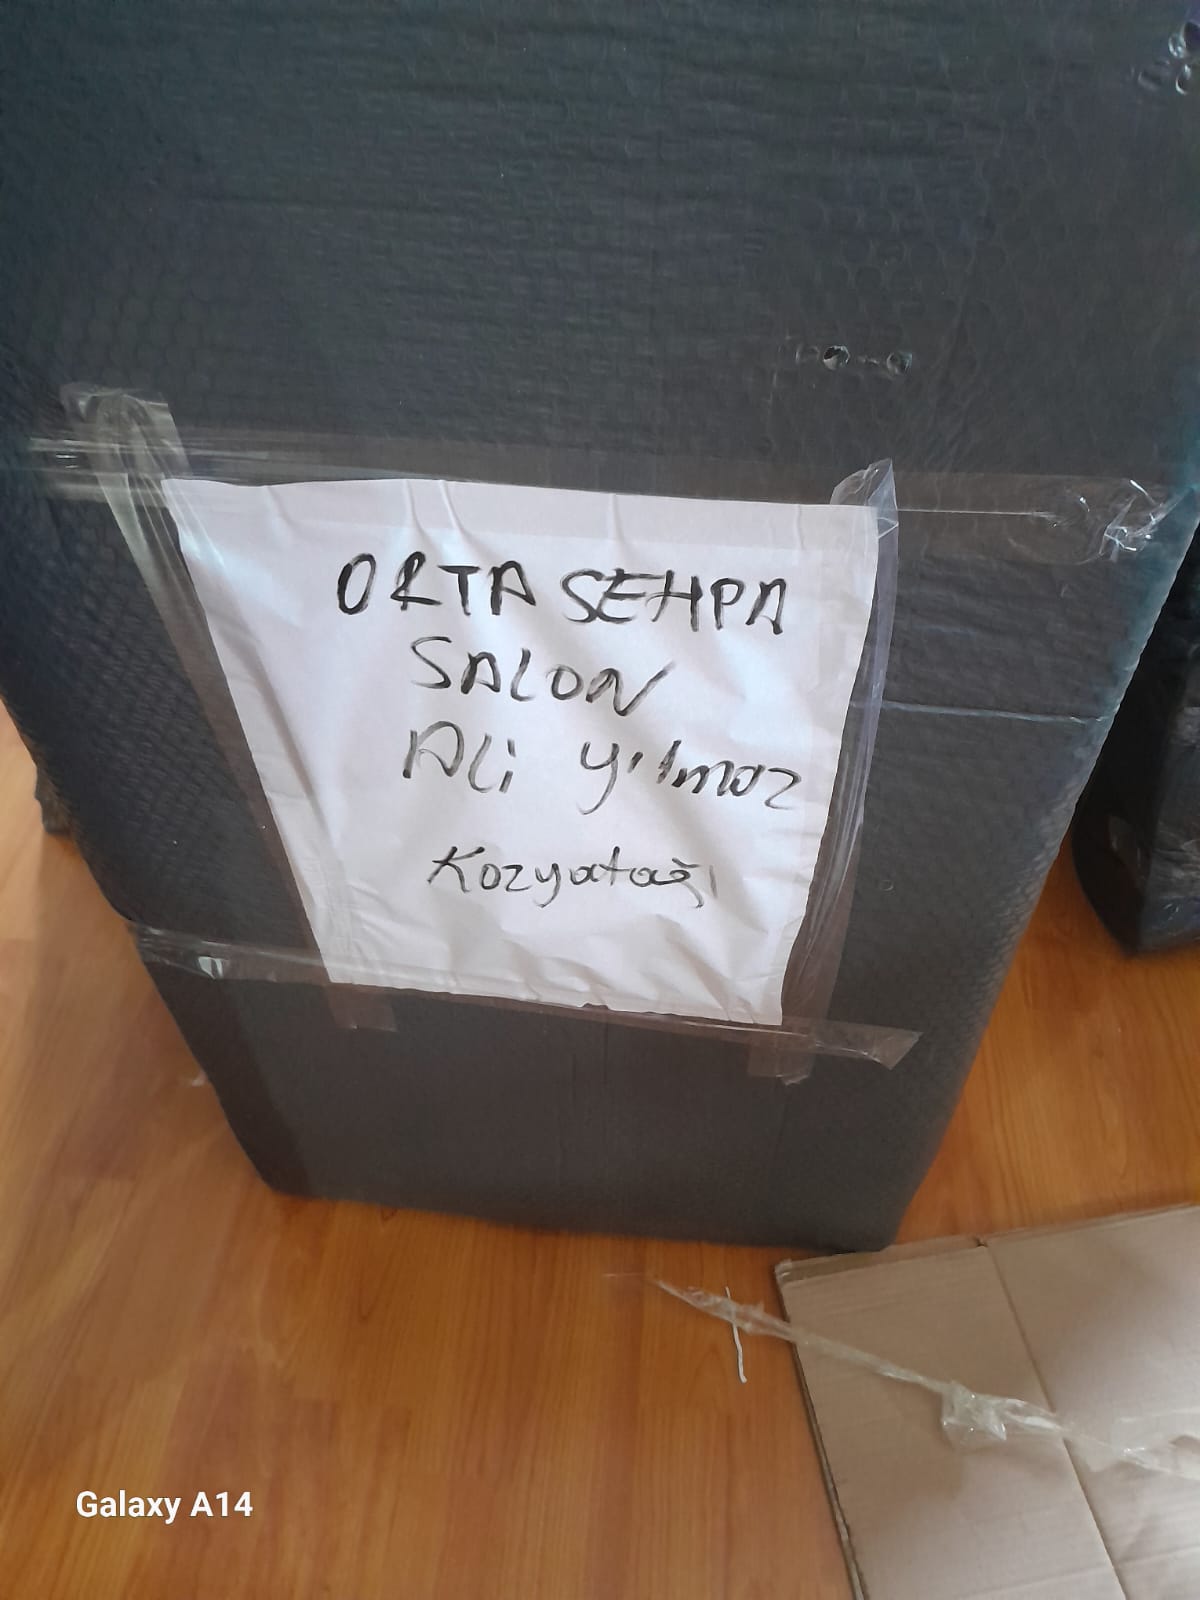 ORTA SEHPA
SALON
Ali Yılmaz
Kozyatağı
Galaxy A14